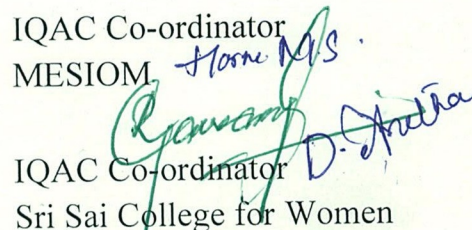 IQAC Co-ordinator
MESIOM
IQAC Co-ordinator
Sri Sai College for Women